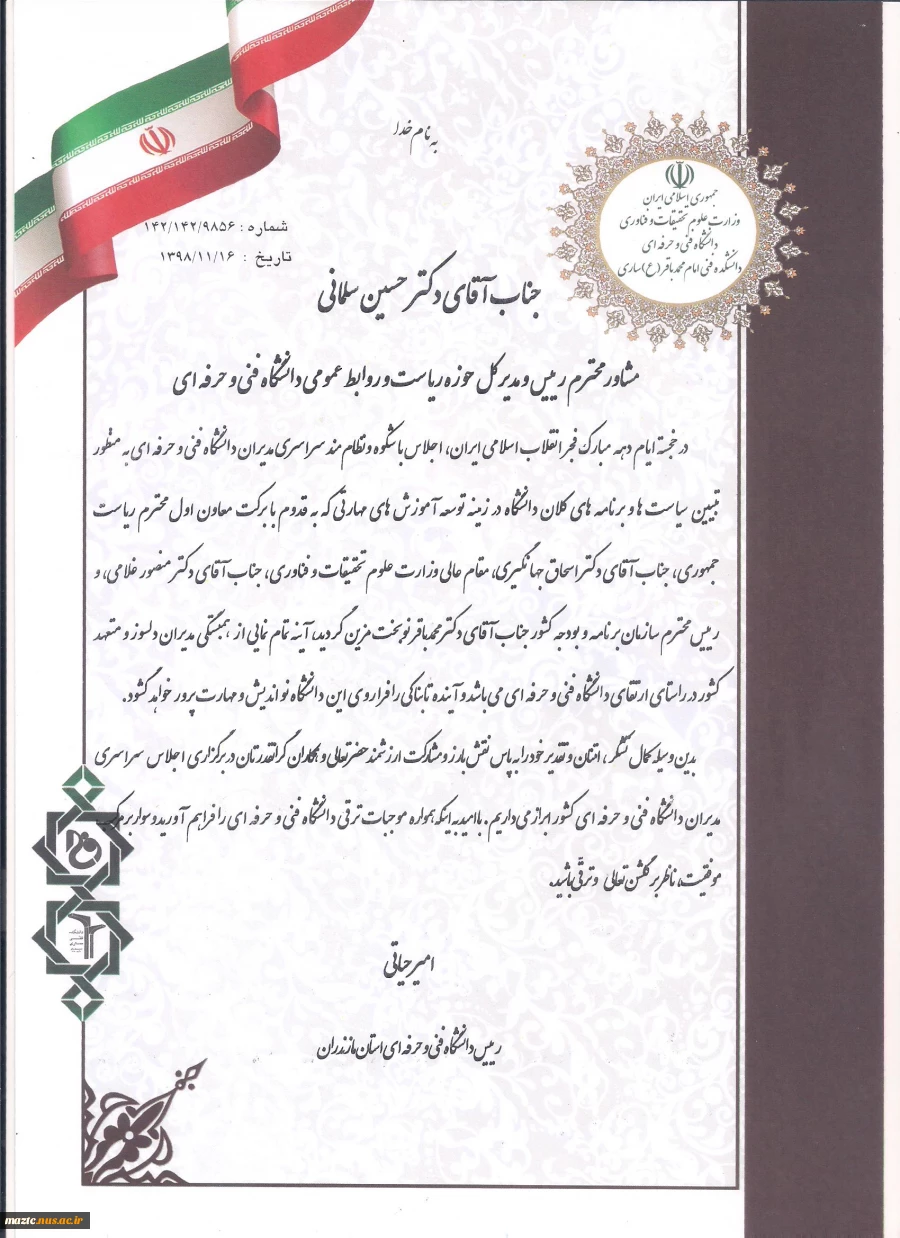 به نام خدا
جمهوری اسلامی ایران
وزارت علوم تحقیقات و فناوری
دانشگاه فنی و حرفه ای
دانشکده فنی امام محمد باقر (ع) ساری
شماره : ۱۴۲/۱۴۲/۹۸۵۶
تاریخ : ۱۳۹۸/۱۱/۱۶
جناب آقای دکتر حسین سلمانی
مشاور محترم رییس و مدیر کل حوزه ریاست و روابط عمومی دانشگاه فنی و حرفه ای
در خجسته ایام دهه مبارک فجر انقلاب اسلامی ایران، اجلاس باشکوه و نظام مند سراسری مدیران دانشگاه فنی و حرفه ای به منظور
تبیین سیاست ها و برنامه های کلان دانشگاه در زمینه توسعه آموزش های مهارتی که به قدوم با برکت معاون اول محترم ریاست
جمهوری، جناب آقای دکتر اسحاق جهانگیری، مقام عالی وزارت علوم تحقیقات و فناوری، جناب آقای دکتر منصور غلامی، و
رییس محترم سازمان برنامه و بودجه کشور جناب آقای دکتر محمد باقر نوبخت مزین گردید، آینه تمام نمایی از همبستگی مدیران دلسوز و متعهد
کشور در راستای ارتقای دانشگاه فنی و حرفه ای می باشد و آینده تابناکی را فراروی این دانشگاه نواندیش و مهارت پرور خواهد گشود.
بدین وسیله کمال تشکر، امتنان و تقدیر خود را به پاس نقش بارز و مشارکت ارزشمند حضرتعالی و همکاران گرانقدرتان در برگزاری اجلاس سراسری
مدیران دانشگاه فنی و حرفه ای کشور ابراز می داریم. با امید به اینکه همواره موجبات ترقی دانشگاه فنی و حرفه ای را فراهم آورید و سوار بر مرکب
موفقیت، ناظر بر گلشن تعالی و ترقّی باشید.
امیر حیاتی
رییس دانشگاه فنی و حرفه ای استان مازندران
maztc.nus.ac.ir